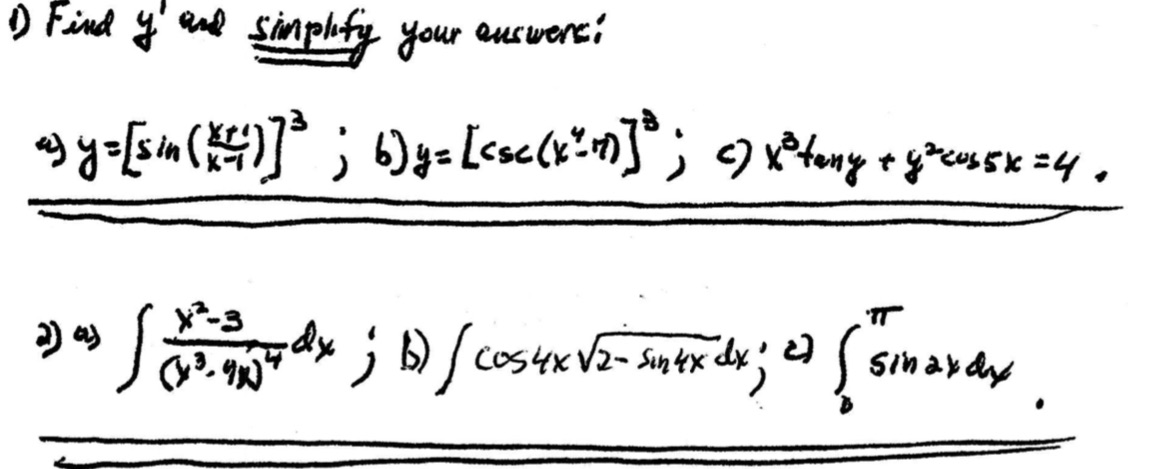 1) Find y' and simplify your answers:
a) y = [sin(x+1/x-1)]³ ; b) y = [csc(x⁴-7)]³ ; c) x³tany + y²cos5x = 4 .
2) a) ∫ x²-3/(x³-9x)⁴ dx ; b) ∫ cos4x √2-sin4x dx ; c) ∫₀^π sin2x dx .